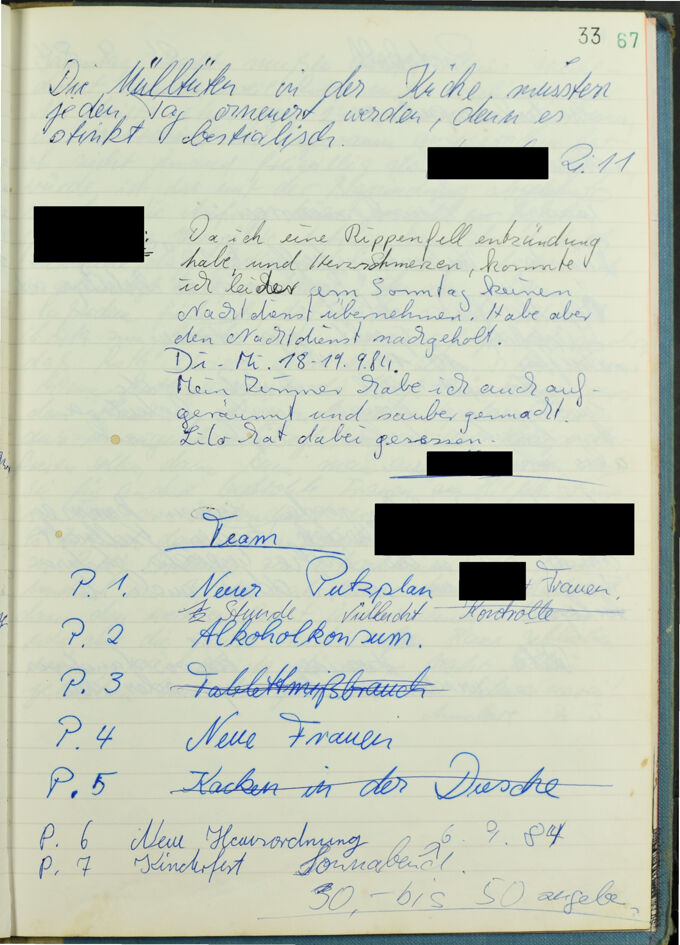 33 67
Die Mülltüten in der Küche müssten
jeden Tag erneuert werden, denn es
stinkt bestialisch.
Zi. 11
Da ich eine Rippenfellentzündung
habe, und Herzschmerzen, konnte
ich leider am Sonntag keinen
Nachtdienst übernehmen. Habe aber
den Nachtdienst nachgeholt.
Di - Mi. 18-19.9.84.
Mein Zimmer habe ich auch auf-
geräumt und sauber gemacht.
Lilo hat dabei gesessen.
Team
P. 1. Neuer Putzplan + Frauen.
Stunde vielleicht Kontrolle
P. 2 Alkoholkonsum.
P. 3 Tablettmißbrauch
P. 4 Neue Frauen
P. 5 Kacken in der Dusche
P. 6 Neue Hausordnung 6. 9. 84
P. 7 Kinderfest Sonnabend.
30,- bis 50